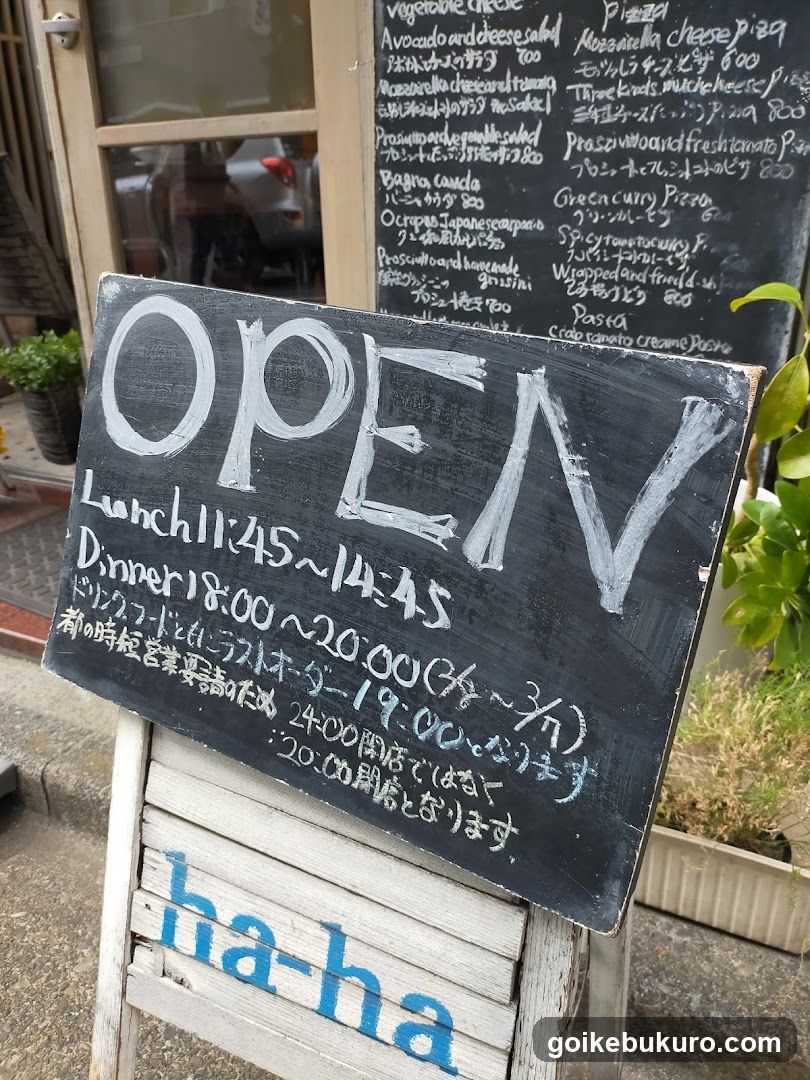 vegetable cheese
Avocado and cheese salad
アボカドとチーズのサラダ 700
Mozzarella cheese and tomato
salad
Prosciutto and vegetable salad
800
Bagna cauda
800
Octopus Japanese carpaccio
Prosciutto and homemade
grissini
700
Pizza
Mozzarella cheese Pizza
モッツァレラチーズピザ 600
Three kinds much cheese P
Pizza 800
Prosciutto and fresh tomato P
800
Green curry Pizza
グリーンカレーピザ
Spicy tomato curry P
Wrapped and fried
800
Pasta
Crab tomato creame Pasta
OPEN
Lunch 11:45～14:45
Dinner 18:00～20:00(2/8～3/7)
ドリンク、フードともにラストオーダー19:00となります
都の時短営業要請のため 24:00閉店ではなく
20:00閉店となります。
ha-ha
goikebukuro.com